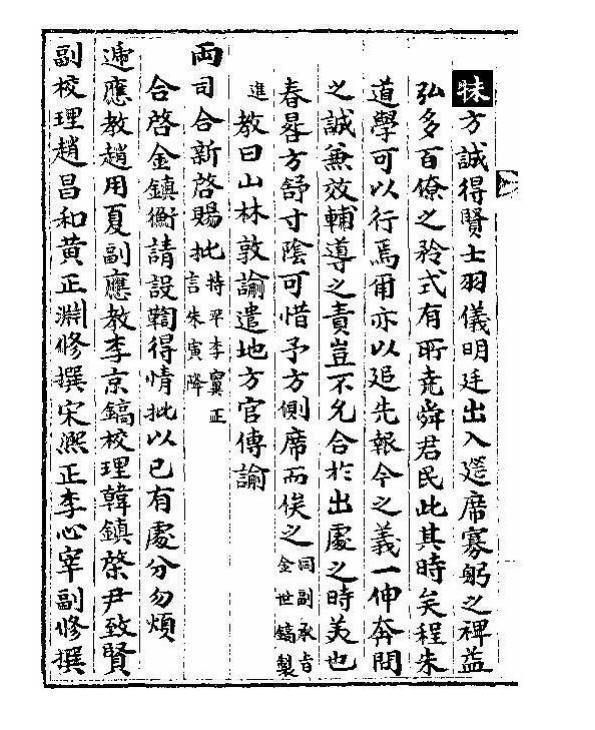 方誠得賢士羽儀明廷出入筵席寡躬之裨益
弘多百僚之矜式有所堯舜君民此其時矣程朱
道學可以行焉爾亦以追先報今之義一伸奔問
之誠兼效輔導之責豈不允合於出處之時美也
春晷方舒寸陰可惜予方側席而俟之同副承旨
金世鎬製
進教曰山林敦諭遣地方官傳諭
兩司合新啓賜批持平李㝢正
言朱寅降
合啓金鎭衡請設鞫得情批以已有處分勿煩
遞應教趙用夏副應教李京鎬校理韓鎭棨尹致賢
副校理趙昌和黃正淵修撰宋熙正李心宰副修撰